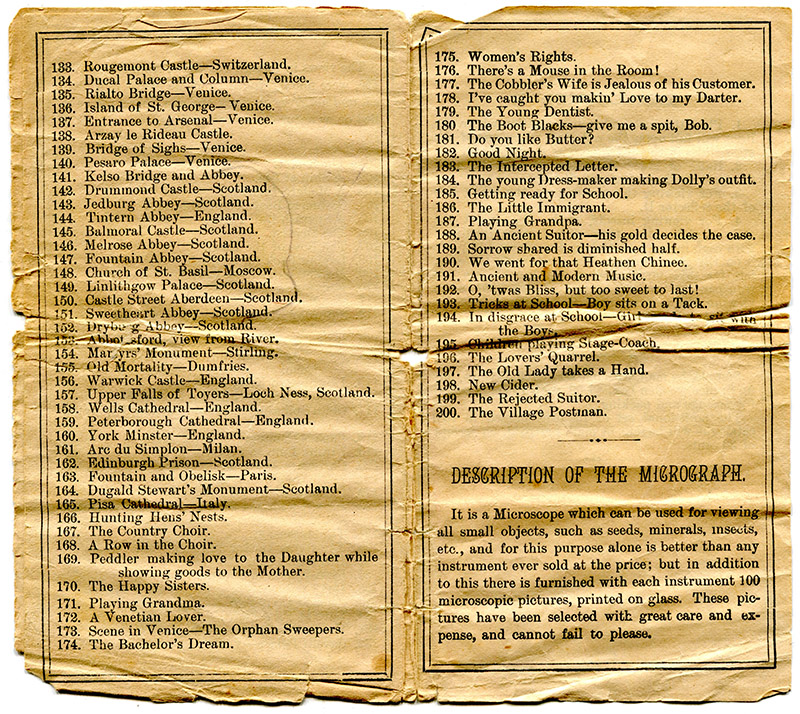 133. Rougemont Castle—Switzerland.
134. Ducal Palace and Column—Venice.
135. Rialto Bridge—Venice.
136. Island of St. George—Venice.
137. Entrance to Arsenal—Venice.
138. Arzay le Rideau Castle.
139. Bridge of Sighs—Venice.
140. Pesaro Palace—Venice.
141. Kelso Bridge and Abbey.
142. Drummond Castle—Scotland.
143. Jedburg Abbey—Scotland.
144. Tintern Abbey—England.
145. Balmoral Castle—Scotland.
146. Melrose Abbey—Scotland.
147. Fountain Abbey—Scotland.
148. Church of St. Basil—Moscow.
149. Linlithgow Palace—Scotland.
150. Castle Street Aberdeen—Scotland.
151. Sweetheart Abbey—Scotland.
152. Abbey—Scotland.
153. Abbotsford, view from River.
154. Martyrs' Monument—Stirling.
155. Old Mortality—Dumfries.
156. Warwick Castle—England.
157. Upper Falls of Toyers—Loch Ness, Scotland.
158. Wells Cathedral—England.
159. Peterborough Cathedral—England.
160. York Minster—England.
161. Arc du Simplon—Milan.
162. Edinburgh Prison—Scotland.
163. Fountain and Obelisk—Paris.
164. Dugald Stewart's Monument—Scotland.
165. Pisa Cathedral—Italy.
166. Hunting Hens' Nests.
167. The Country Choir.
168. A Row in the Choir.
169. Peddler making love to the Daughter while
showing goods to the Mother.
170. The Happy Sisters.
171. Playing Grandma.
172. A Venetian Lover.
173. Scene in Venice—The Orphan Sweepers.
174. The Bachelor's Dream.
175. Women's Rights.
176. There's a Mouse in the Room!
177. The Cobbler's Wife is Jealous of his Customer.
178. I've caught you makin' Love to my Darter.
179. The Young Dentist.
180 The Boot Blacks—give me a spit, Bob.
181. Do you like Butter?
182. Good Night.
183. The Intercepted Letter.
184. The young Dress-maker making Dolly's outfit.
185. Getting ready for School.
186. The Little Immigrant.
187. Playing Grandpa.
188. An Ancient Suitor—his gold decides the case.
189. Sorrow shared is diminished half.
190. We went for that Heathen Chinee.
191. Ancient and Modern Music.
192. O, 'twas Bliss, but too sweet to last!
193. Tricks at School—Boy sits on a Tack.
194. In disgrace at School— with
the Boys.
195. Children playing Stage-Coach.
196. The Lovers' Quarrel.
197. The Old Lady takes a Hand.
198. New Cider.
199. The Rejected Suitor.
200. The Village Postman.
DESCRIPTION OF THE MICROGRAPH.
It is a Microscope which can be used for viewing
all small objects, such as seeds, minerals, insects,
etc., and for this purpose alone is better than any
instrument ever sold at the price; but in addition
to this there is furnished with each instrument 100
microscopic pictures, printed on glass. These pic-
tures have been selected with great care and ex-
pense, and cannot fail to please.